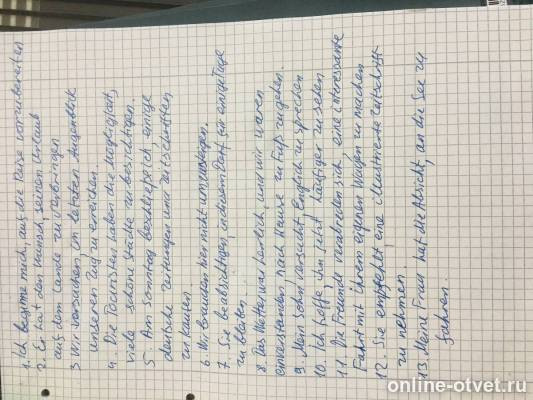 1. Ich beginne mich, auf die Reise vorzubereiten
2. Er hat den Wunsch, seinen Urlaub
auf dem Lande zu verbringen
3 Wir versuchen, im letzten Augenblick
unseren Zug zu erreichen.
4. Die Touristen haben die Möglichkeit,
viele schöne Städte zu besichtigen.
5. Am Sonntag beschließe ich einige
deutsche Zeitungen und Zeitschriften
zu kaufen
6. Wir brauchen hier nicht umzusteigen.
7. Sie beabsichtigen, in diesem Dorf für einige Tage
zu bleiben.
8. Das Wetter war herrlich, und wir waren
einverstanden, nach Hause zu Fuß zu gehen.
9. Mein Sohn versucht, Englisch zu sprechen
10. Ich hoffe, ihn jetzt häufiger zu sehen
11. Die Freunde verabreden sich eine interessante
Fahrt mit ihrem eigenen Wagen zu machen
12. Sie empfiehlt eine illustrierte Zeitschrift
zu nehmen
13. Meine Frau hat die Absicht, an die See zu
fahren.
online-otvet.ru